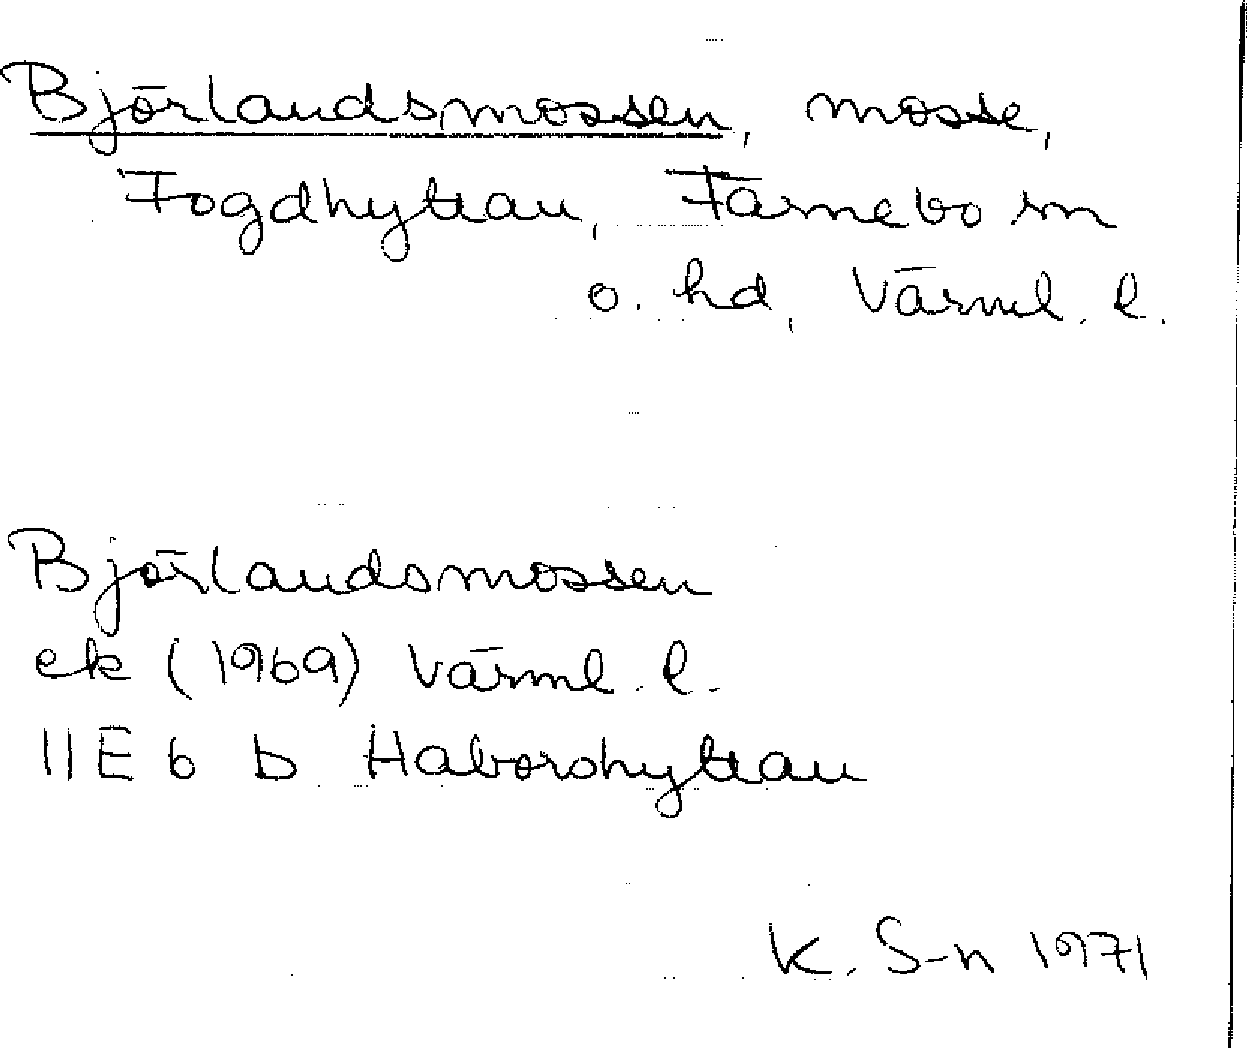 Björlandsmossen, mosse,
Fogdhyttan, Färnebo sn
o. hd, Värml. l.
Björlandsmossen
ek (1969) Värml. l.
11E 6 b Haborshyttan
K. S-n 1971